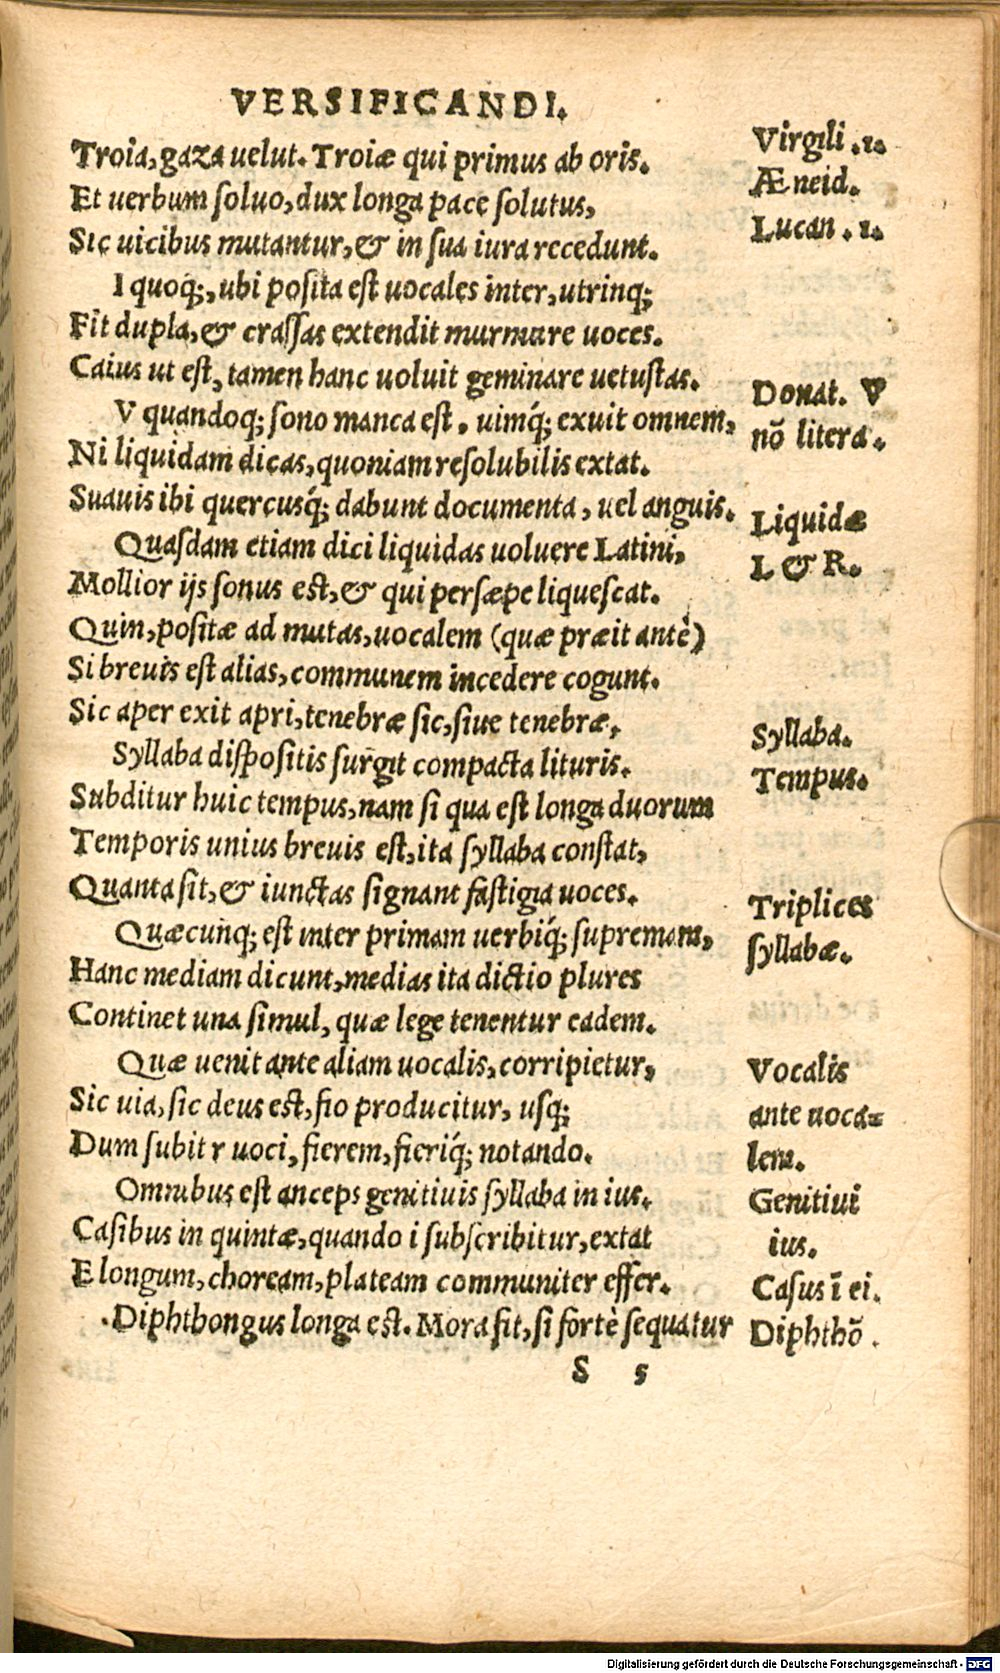 VERSIFICANDI.
Troia, gaza uelut. Troiæ qui primus ab oris.
Virgili .1.
Et uerbum soluo, dux longa pace solutus,
Æneid.
Sic uicibus mutantur, & in sua iura recedunt.
Lucan . 1.
I quoq;, ubi posita est uocales inter, utrinq;
Fit dupla, & crassas extendit murmure uoces.
Caius ut est, tamen hanc uoluit geminare uetustas.
Donat. V
V quandoq; sono manca est, uimq́; exuit omnem,
nō litera.
Ni liquidam dicas, quoniam resolubilis extat.
Suauis ibi quercusq́; dabunt documenta, uel anguis.
Liquidæ
Quasdam etiam dici liquidas uoluere Latini,
L & R.
Mollior ijs sonus est, & qui persæpe liquescat.
Quin, positæ ad mutas, uocalem (quæ præit antè)
Si breuis est alias, communem incedere cogunt.
Sic aper exit apri, tenebræ sic, siue tenebræ,
Syllaba.
Syllaba dispositis surgit compacta lituris.
Tempus.
Subditur huic tempus, nam si qua est longa duorum
Temporis unius breuis est, ita syllaba constat,
Quanta sit, & iunctas signant fastigia uoces.
Triplices
Quæcunq; est inter primam uerbiq́; supremam,
syllabæ.
Hanc mediam dicunt, medias ita dictio plures
Continet una simul, quæ lege tenentur eadem.
Quæ uenit ante aliam uocalis, corripietur,
Vocalis
Sic uia, sic deus est, fio producitur, usq;
ante uoca=
Dum subit r uoci, fierem, fieriq́; notando.
lem.
Omnibus est anceps genitiuis syllaba in ius.
Genitiui
Casibus in quintæ, quando i subscribitur, extat
ius.
E longum, choream, plateam communiter effer.
Casus ī ei.
Diphthongus longa est. Mora fit, si fortè sequatur
Diphthō.
S 5
Digitalisierung gefördert durch die Deutsche Forschungsgemeinschaft - DFG